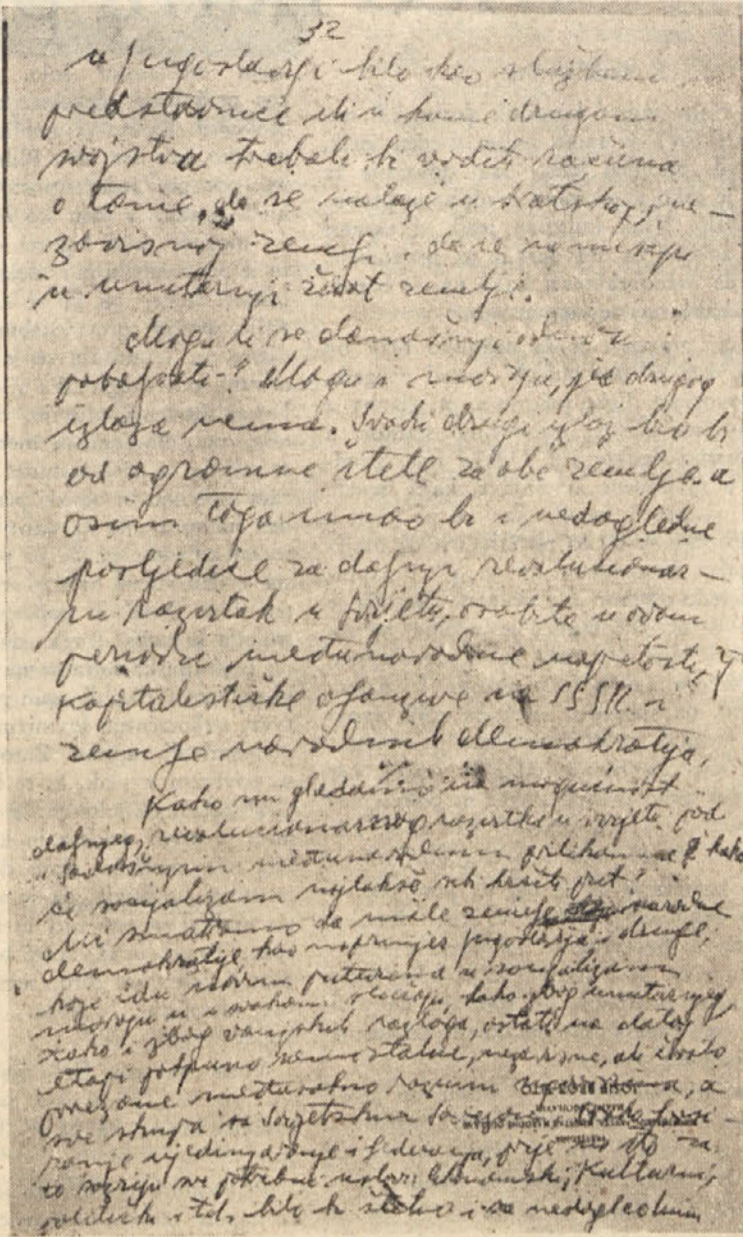 32
u Jugoslaviji bilo kao službeni
predstavnici ili u kome drugom
svojstvu trebali bi voditi računa
o tome, da se nalaze u bratskoj, ne-
zavisnoj zemlji, da se ne miješaju
u unutarnji život zemlje.
Mogu li se današnji odnosi
poboljšati? Mogu i moraju, jer drugog
izlaza nema. Svaki drugi izlaz bio bi
od ogromne štete za obe zemlje, a
osim toga imao bi i nedogledne
posljedice za daljnji revolucionar-
ni razvitak u svijetu, osobito u ovom
periodu međunarodne napetosti, i
kapitalističke ofanzive na SSSR i
zemlje narodnih demokratija.
Kako mi gledamo na mogućnost
daljnjeg revolucionarnog razvitka u svijetu pod
sadašnjim međunarodnim prilikama i kako
će socijalizam najlakše krčiti put?
Mi smatramo da male zemlje narodne
demokratije kao naprimjer Jugoslavija i druge,
koje idu novim putevima u socijalizam
moraju u svakom slučaju, kako zbog unutarnjeg
tako i zbog vanjskih razloga, ostati na datoj
etapi potpuno samostalne, nezavisne, ali čvrsto
povezane međusobno raznim a
sve skupa sa Sovjetskim
ranje ujedinjavanje i federiranje, prije no što za
to sazriju svi potrebni uslovi: ekonomski, kulturni,
politički i td. bilo bi štetno i sa nedoglednim